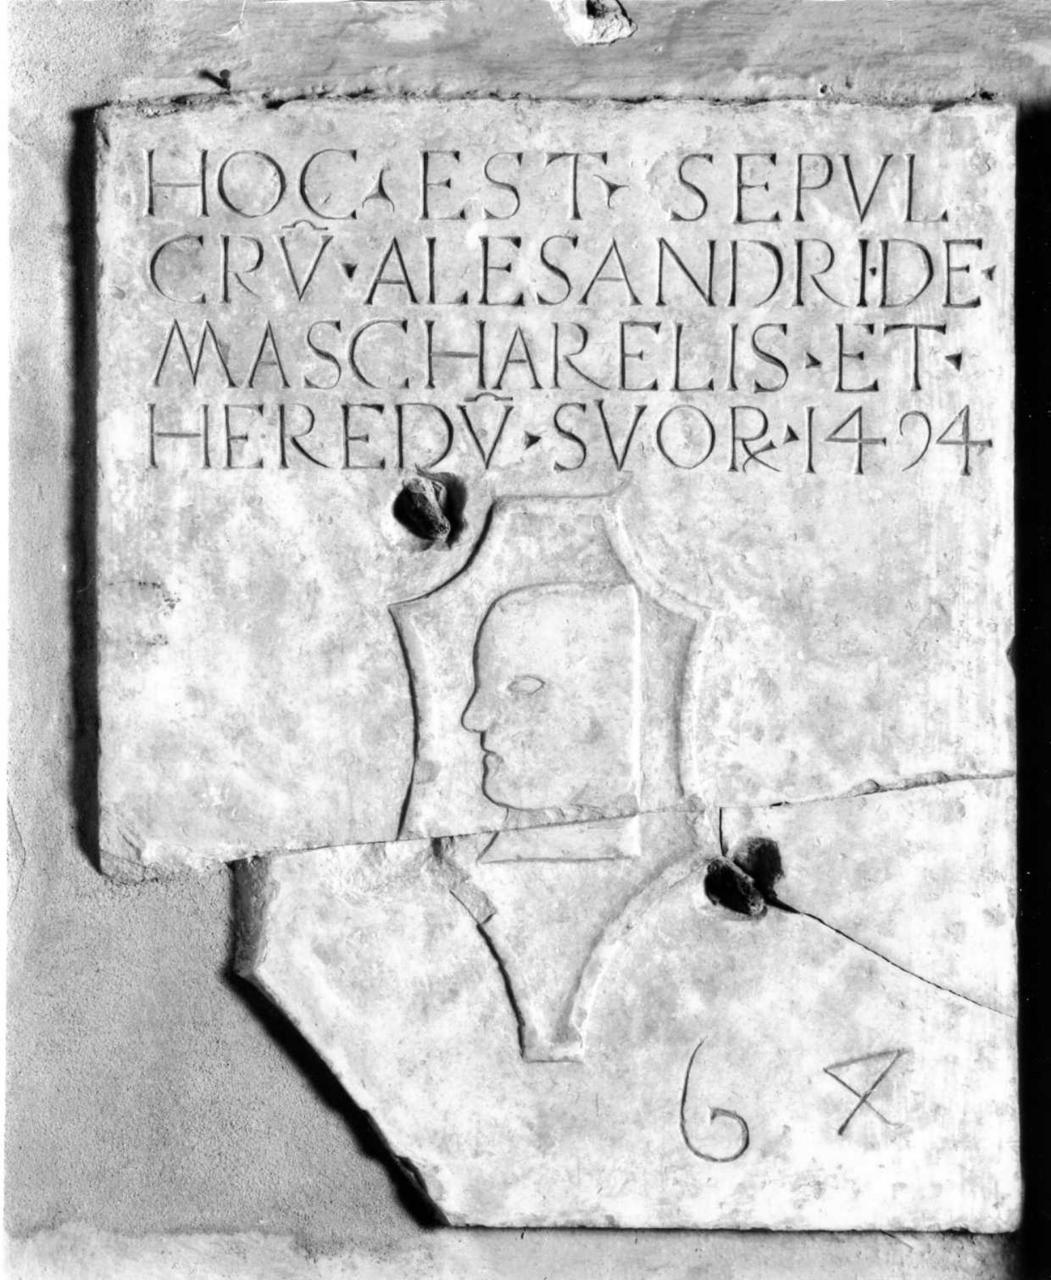 HOC · EST · SEPVL
CRV̄ · ALESANDRI · DE ·
MASCHARELIS · ET ·
HEREDV̄ · SVOꝝ · 1494
64